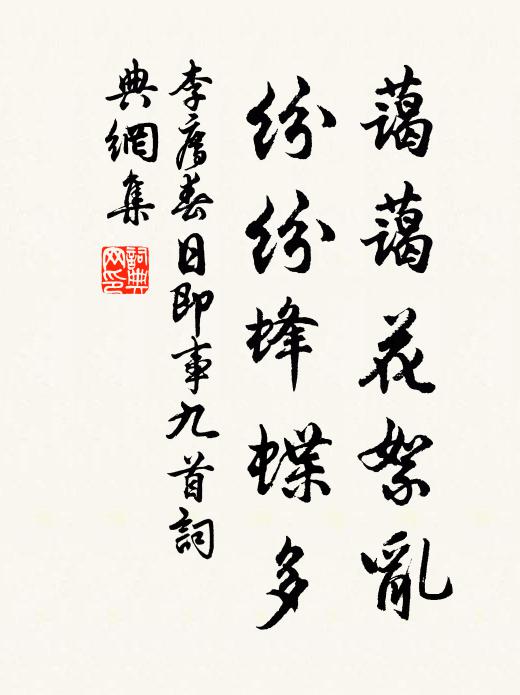 藹藹花絮亂
紛紛蜂蝶多
李廌春日即事九首詞
典網集
詞典
网印